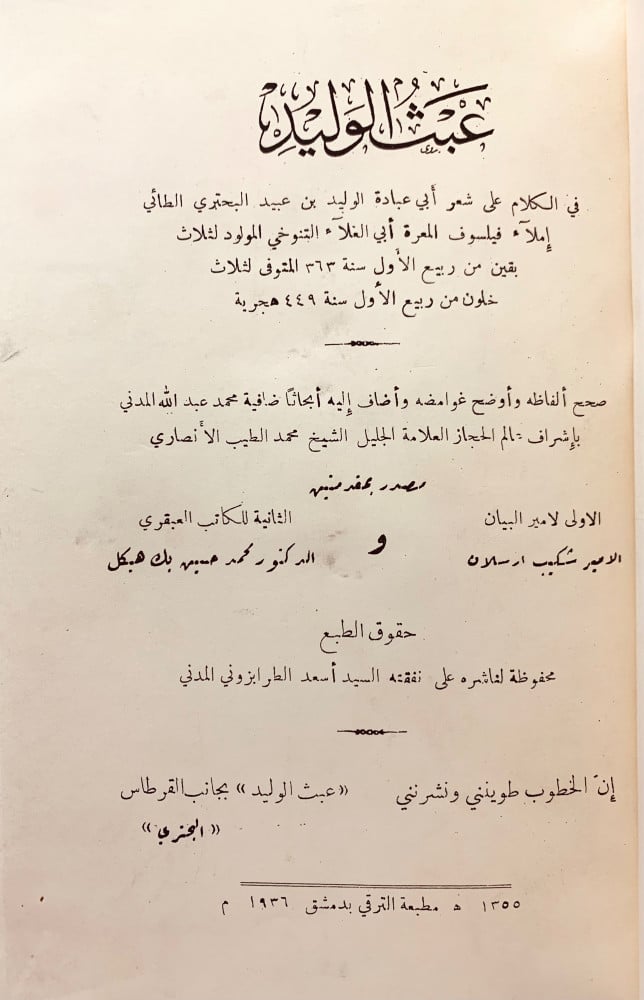 عَبَثُ الوَليدِ
في الكلام على شعر أبي عبادة الوليد بن عبيد البحتري الطائي
إملآء فيلسوف المعرة أبي العلآء التنوخي المولود لثلاث
بقين من ربيع الأول سنة ٣٦٣ المتوفى لثلاث
خلون من ربيع الأول سنة ٤٤٩ هجرية
صحح ألفاظه وأوضح غوامضه وأضاف إليه أبحاثاً ضافية محمد عبد الله المدني
بإشراف عالم الحجاز العلامة الجليل الشيخ محمد الطيب الأنصاري
مصدر بمقدمتين
الاولى لامير البيان
الامير شكيب ارسلان
و
الثانية للكاتب العبقري
الدكتور محمد حسين بك هيكل
حقوق الطبع
محفوظة لناشره على نفقته السيد أسعد الطرابزوني المدني
إنّ الخطوب طوينني ونشرنني «عبث الوليد» بجانب القرطاس
«البحتري»
١٣٥٥ هـ مطبعة الترقي بدمشق ١٩٣٦ م